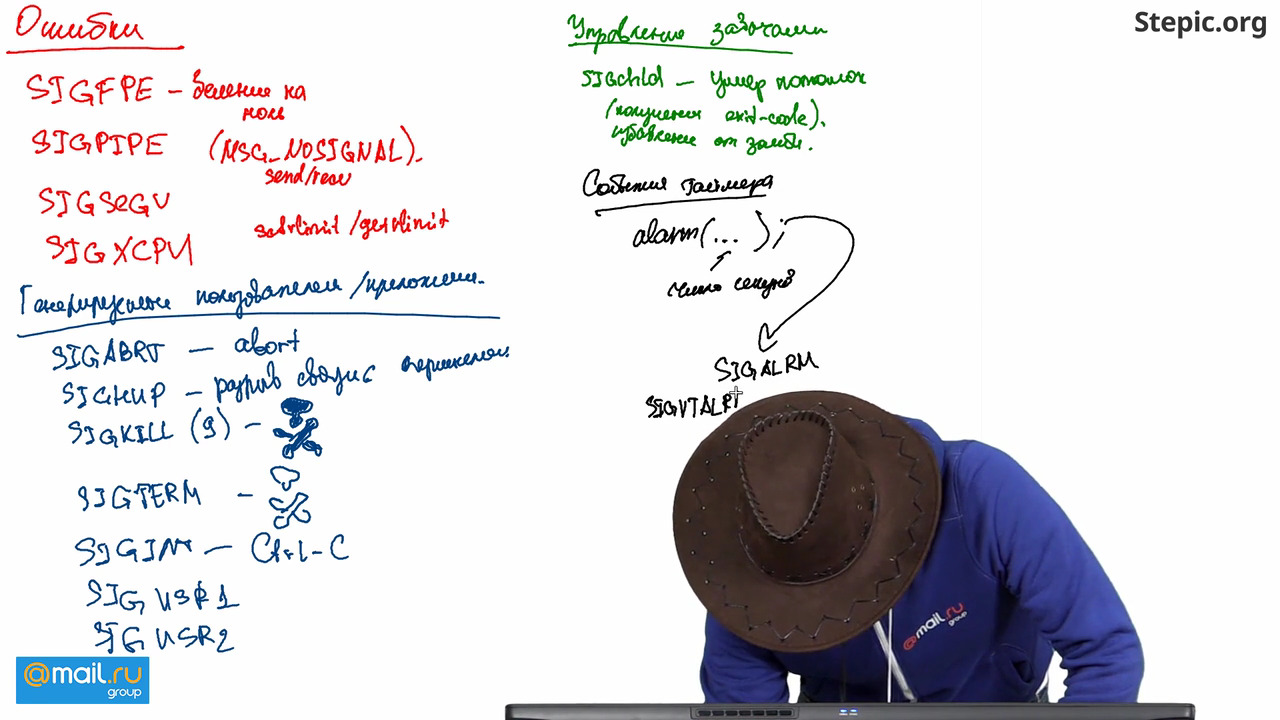 Ошибки
SIGFPE – деление на
ноль
SIGPIPE (MSG_NOSIGNAL).
send/recv
SIGSeGV
setrlimit/getrlimit
SIGXCPU
Генерируемые пользователем/приложением.
SIGABRT – abort
SIGHUP – разрыв связи с терминалом
SIGKILL (9) –
SIGTERM –
SIGINT – Ctrl-C
SIGUSR1
SIGUSR2
@mail.ru
group
Управление задачами
SIGchld – Умер потомок
(получения exit-code).
избавление от зомби.
События таймера
alarm(...);
число секунд
SIGALRM
SIGVTALR
@mail.ru
group
Stepic.org